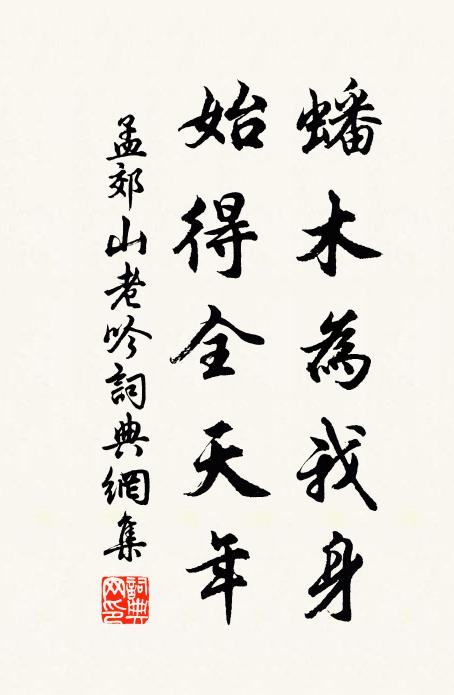 蟠木為我身
始得全天年
孟郊山老吟詞典網集
詞典網印